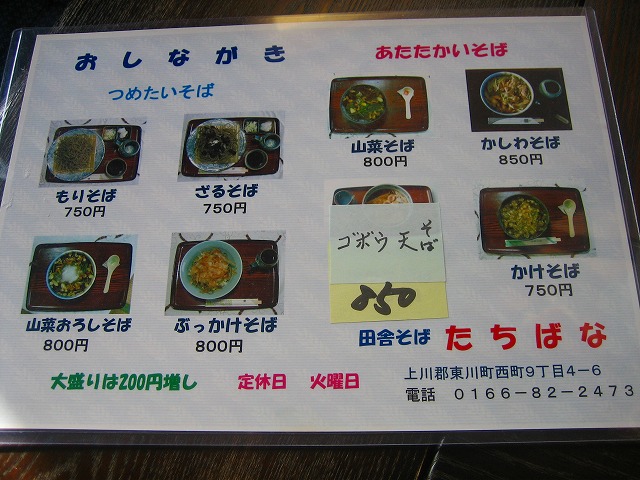 おしながき
つめたいそば
もりそば
750円
ざるそば
750円
山菜おろしそば
800円
ぶっかけそば
800円
あたたかいそば
山菜そば
800円
かしわそば
850円
ゴボウ天そば
850
かけそば
750円
田舎そば たちばな
大盛りは200円増し 定休日 火曜日
上川郡東川町西町9丁目4-6
電話 0166-82-2473